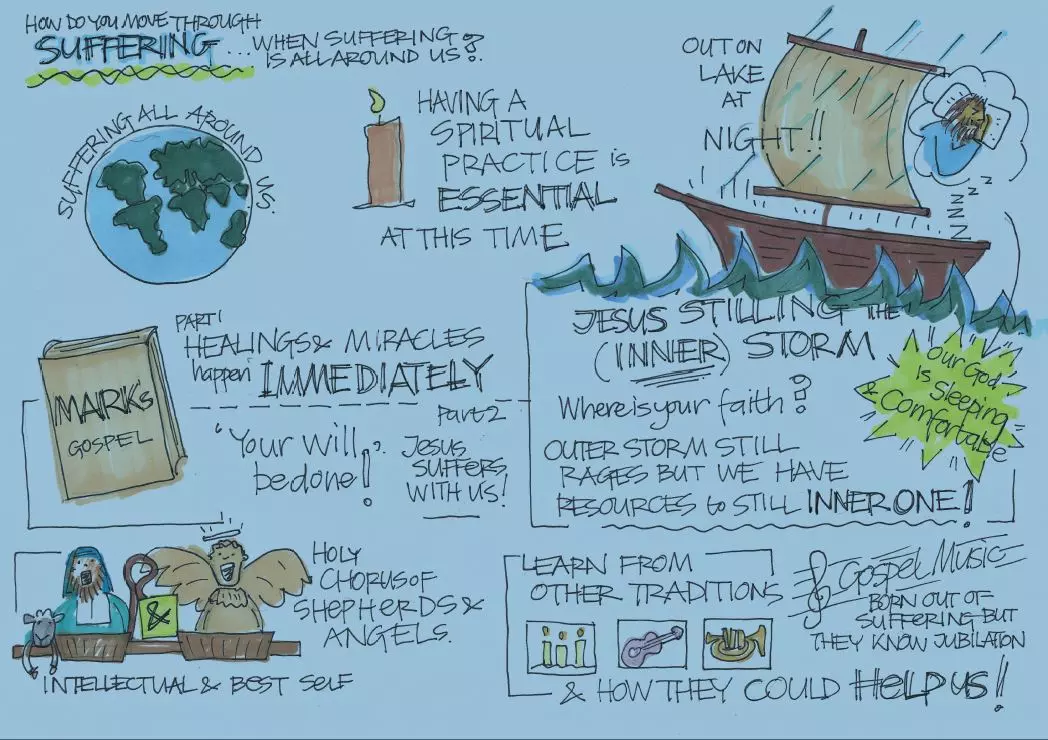 HOW DO YOU MOVE THROUGH
SUFFERING... WHEN SUFFERING
IS ALL AROUND US?
SUFFERING ALL AROUND US.
HAVING A
SPIRITUAL
PRACTICE is
ESSENTIAL
AT THIS TIME
OUT ON
LAKE
AT
NIGHT!!
zzzzzzz
PART 1
HEALINGS & MIRACLES
happen IMMEDIATELY
MARK's
GOSPEL
"Your will
be done!"
Part 2
JESUS
SUFFERS
WITH US!
JESUS STILLING THE
(INNER) STORM
Where is your faith?
OUTER STORM STILL
RAGES BUT WE HAVE
RESOURCES to STILL INNER ONE!
OUR GOD
is Sleeping
& Comfortable
&
HOLY
CHORUS OF
SHEPHERDS &
ANGELS.
INTELLECTUAL & BEST SELF
LEARN FROM
OTHER TRADITIONS
& HOW THEY COULD HELP US!!
Gospel Music
BORN OUT OF
SUFFERING BUT
THEY KNOW JUBILATON